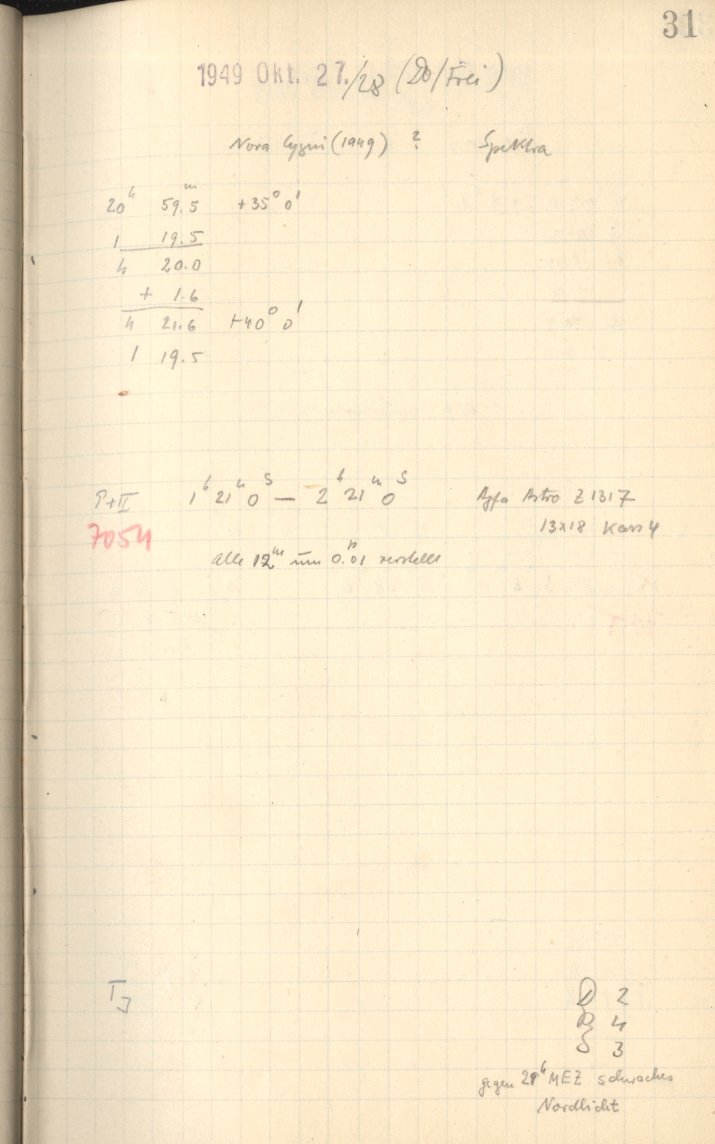 31
1949 Okt. 27./28 (Do/Frei)
Nova Cygni (1949) ? Spektra
20h 59.5m +35° 0'
1 19.5
4 20.0
+ 1.6
4 21.6 +40° 0'
1 19.5
P+II 1h 21m 0s — 2h 21m 0s Agfa Astro Z 1317
7054 13x18 Kass 4
alle 12m um 0.01 verstellt
D 2
R 4
S 3
gegen 21h MEZ schwaches
Nordlicht